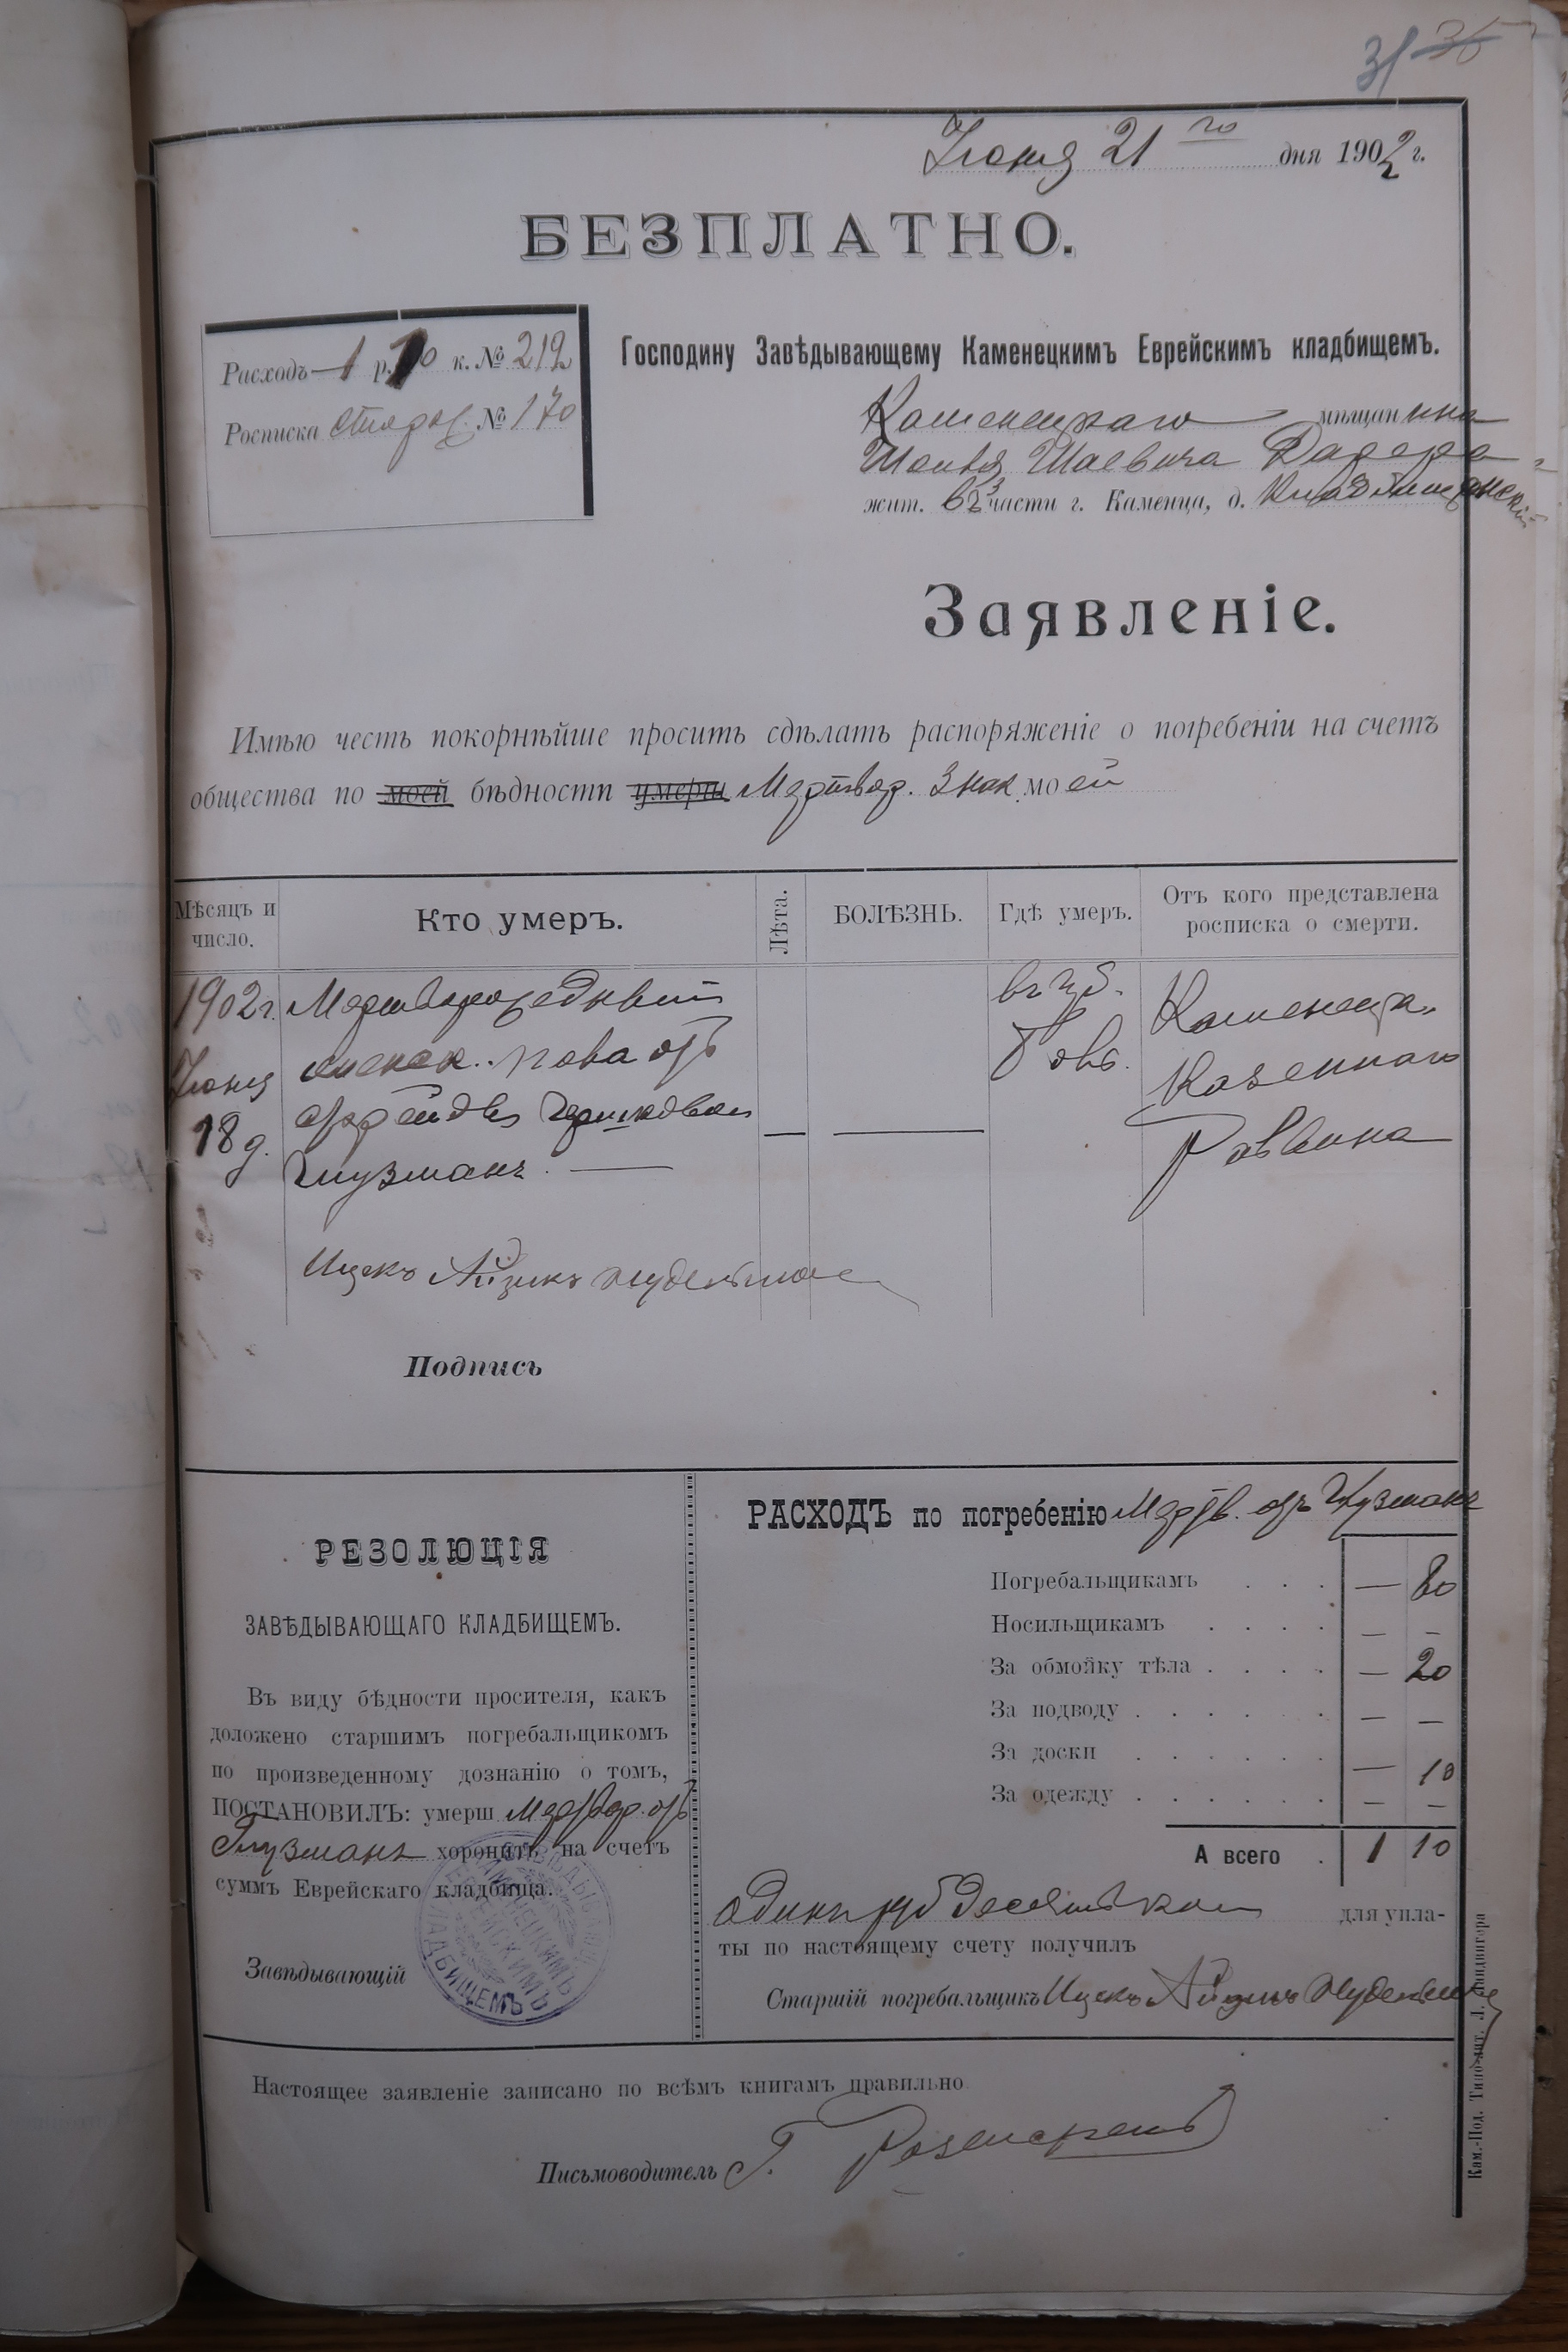 31 36
Іюня 21 го дня 1902 г.
БЕЗПЛАТНО.
Расходъ 1 р. 10 к. № 212
Росписка № 170
Господину Завѣдывающему Каменецкимъ Еврейскимъ кладбищемъ.
Каменецкаго мѣщанина
Шаевича
жит. въ 3 части г. Каменца, д.
Заявленіе.
Имѣю честь покорнѣйше просить сдѣлать распоряженіе о погребеніи на счетъ
общества по моей бѣдности умерш Мертвор. Знак. моей
Мѣсяцъ и число.
Кто умеръ.
Лѣта.
БОЛѢЗНЬ.
Гдѣ умеръ.
Отъ кого представлена росписка о смерти.
1902 г. Мертворожденный
Іюня пола отъ
18 д.
Глузманъ
въ
Каменецк.
Казеннаго
Раввина
Ицекъ Айзикъ
Подпись
РЕЗОЛЮЦІЯ
ЗАВѢДЫВАЮЩАГО КЛАДБИЩЕМЪ.
Въ виду бѣдности просителя, какъ
доложено старшимъ погребальщикомъ
по произведенному дознанію о томъ,
ПОСТАНОВИЛЪ: умерш Мертвор. отъ
Глузманъ хоронить на счетъ
суммъ Еврейскаго кладбища.
Завѣдывающій
ЗАВѢДЫВАЮЩІЙ КАМЕНЕЦКИМЪ ЕВРЕЙСКИМЪ КЛАДБИЩЕМЪ
РАСХОДЪ по погребенію Мертв. отъ Глузманъ
Погребальщикамъ . . . — 80
Носильщикамъ . . . . — —
За обмойку тѣла . . . . — 20
За подводу . . . . . . — —
За доски . . . . . . — 10
За одежду . . . . . . — —
А всего . 1 10
одинъ руб десять коп для упла-
ты по настоящему счету получилъ
Старшій погребальщикъ Ицекъ Айзикъ
Настоящее заявленіе записано по всѣмъ книгамъ правильно
Письмоводитель Г.
Кам.-Под. Типо-лит. Л. Ландвигера